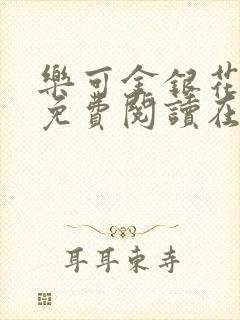 樂可金銀花
免費閱讀在
耳耳東寺